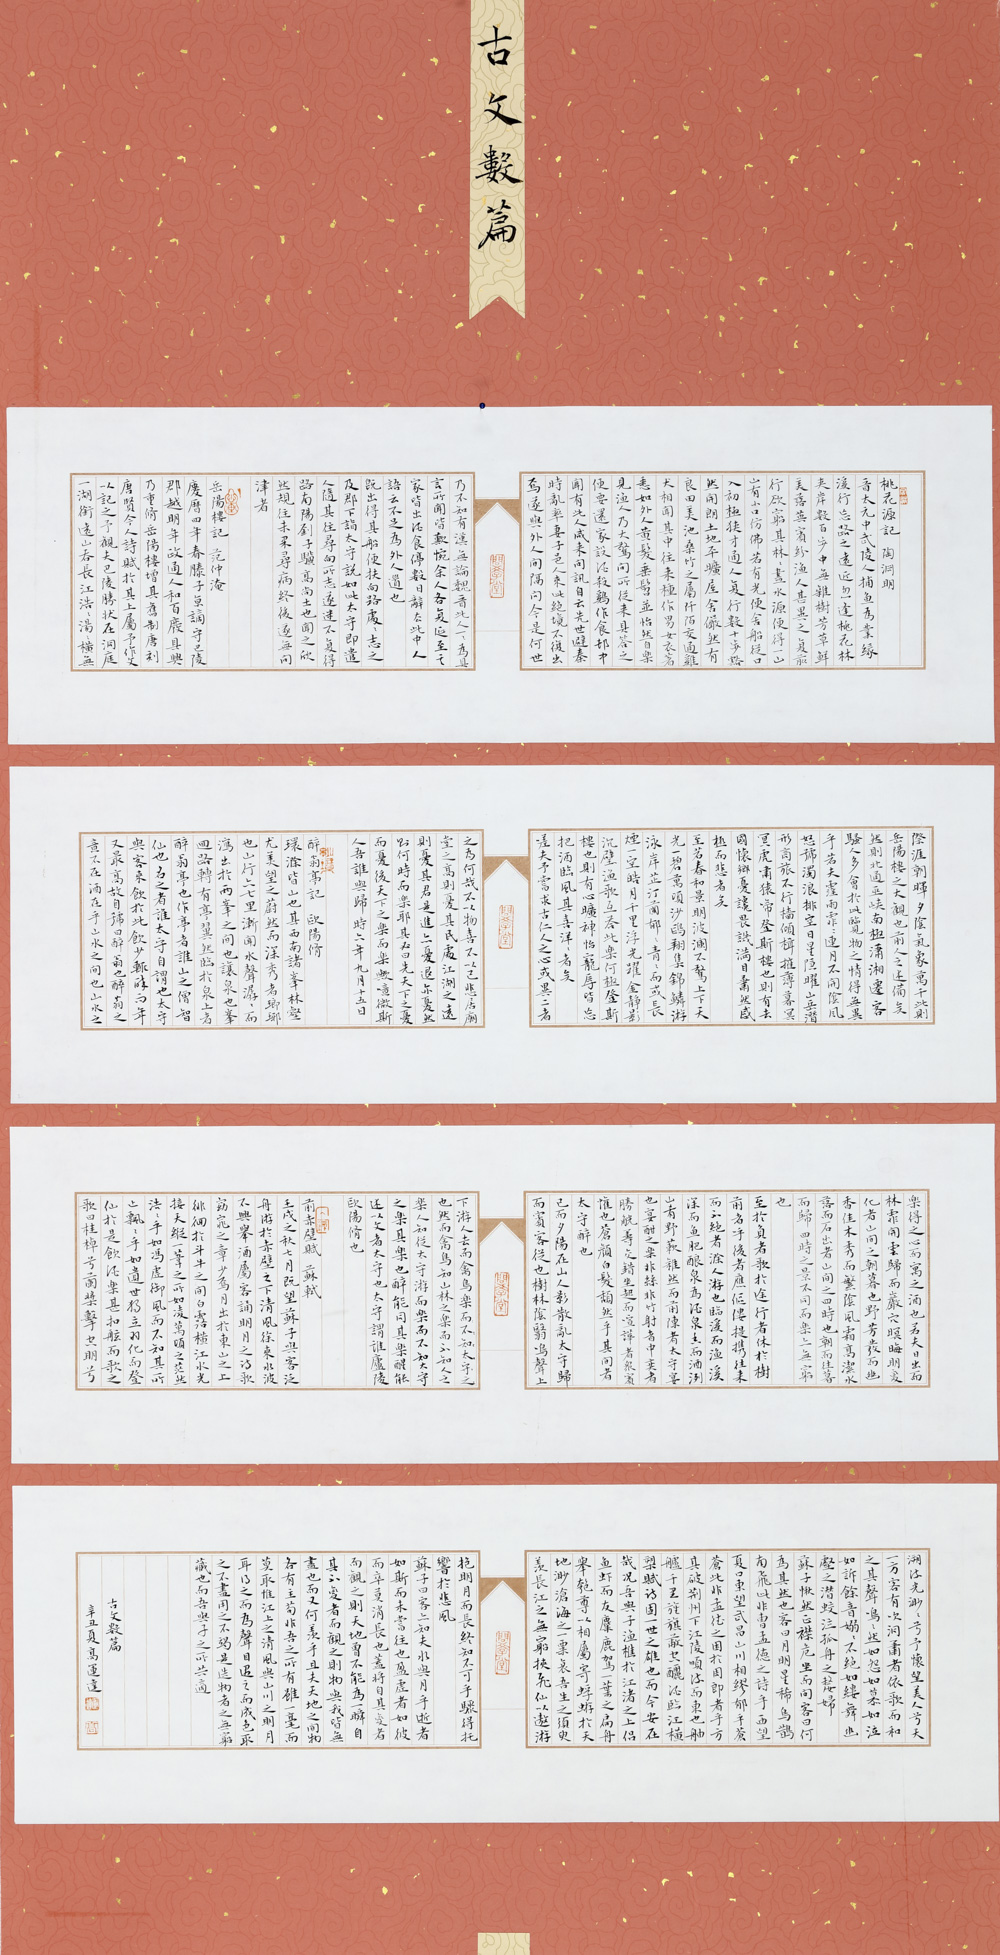 古文數篇
桃花源記 陶淵明
晉太元中武陵人捕魚為業緣
溪行忘路之遠近忽逢桃花林
夾岸數百步中無雜樹芳草鮮
美落英繽紛漁人甚異之復前
行欲窮其林〻盡水源便得一山
山有小口仿佛若有光便舍船從口
入初極狹才通人復行數十步豁
然開朗土地平曠屋舍儼然有
良田美池桑竹之屬阡陌交通雞
犬相聞其中往來種作男女衣著
悉如外人黃髮垂髫並怡然自樂
見漁人乃大驚問所從來具答之
便要還家設酒殺雞作食村中
聞有此人咸來問訊自云先世避秦
時亂率妻子邑人來此絕境不復出
焉遂與外人間隔問今是何世
乃不知有漢無論魏晉此人一〻為具
言所聞皆歎惋余人各復延至其
家皆出酒食停數日辭去此中人
語云不足為外人道也
既出得其船便扶向路處〻志之
及郡下詣太守說如此太守即遣
人隨其往尋向所志遂迷不復得
路南陽劉子驥高尚士也聞之欣
然規往未果尋病終後遂無問
津者
岳陽樓記 范仲淹
慶曆四年春滕子京謫守巴陵
郡越明年政通人和百廢具興
乃重脩岳陽樓增其舊制唐刻
唐賢今人詩賦於其上屬予作文
以記之予觀夫巴陵勝狀在洞庭
一湖銜遠山吞長江浩〻湯〻橫無
際涯朝暉夕陰氣象萬千此則
岳陽樓之大觀也前人之述備矣
然則北通巫峽南極瀟湘遷客
騷人多會於此覽物之情得無異
乎若夫霪雨霏〻連月不開陰風
怒號濁浪排空日星隱曜山岳潛
形商旅不行檣傾楫摧薄暮冥
冥虎嘯猿啼登斯樓也則有去
國懷鄉憂讒畏譏滿目蕭然感
極而悲者矣
至若春和景明波瀾不驚上下天
光一碧萬頃沙鷗翔集錦鱗游
泳岸芷汀蘭郁〻青〻而或長
煙一空皓月千里浮光躍金靜影
沉璧漁歌互答此樂何極登斯
樓也則有心曠神怡寵辱皆忘
把酒臨風其喜洋〻者矣
嗟夫予嘗求古仁人之心或異二者
之為何哉不以物喜不以己悲居廟
堂之高則憂其民處江湖之遠
則憂其君是進亦憂退亦憂然
則何時而樂耶其必曰先天下之憂
而憂後天下之樂而樂噫微斯
人吾誰與歸 時六年九月十五日
醉翁亭記 歐陽脩
環滁皆山也其西南諸峯林壑
尤美望之蔚然而深秀者瑯琊
也山行六七里漸聞水聲潺〻而
瀉出於兩峯之間也讓泉也峯
迴路轉有亭翼然臨於泉上者
醉翁亭也作亭者誰山之僧智
仙也名之者誰太守自謂也太守
與客來飲於此飲少輒醉而年
又最高故自號曰醉翁也醉翁之
意不在酒在乎山水之間也山水之
樂得之心而寓之酒也若夫日出而
林霏開雲歸而巖穴暝晦明變
化者山間之朝暮也野芳發而幽
香佳木秀而繁陰風霜高潔水
落而石出者山間之四時也朝而往暮
而歸四時之景不同而樂亦無窮
也
至於負者歌於途行者休於樹
前者乎後者應傴僂提攜往來
而不絕者滁人游也臨溪而漁溪
深而魚肥釀泉為酒泉香而酒洌
山肴野蔌雜然而前陳者太守宴
也宴酣之樂非絲非竹射者中奕者
勝觥籌交錯坐起而諠譁者眾賓
懽也蒼顏白髮頹然乎其間者
太守醉也
已而夕陽在山人影散亂太守歸
而賓客從也樹林陰翳鳴聲上
下游人去而禽鳥樂也
也然而禽鳥知山林之樂而不知人之
樂人知從太守游而樂而不知太守
之樂其樂也醉能同其樂醒能
述以文者太守也太守謂誰廬陵
歐陽脩也
前赤壁賦 蘇軾
壬戌之秋七月既望蘇子與客泛
舟游於赤壁之下清風徐來水波
不興舉酒屬客誦明月之詩歌
窈窕之章少焉月出於東山之上
徘徊於斗牛之間白露橫江水光
接天縱一葦之所如凌萬頃之茫然
浩〻乎如馮虛御風而不知其所
止飄〻乎如遺世獨立羽化而登
仙於是飲酒樂甚扣舷而歌之
歌曰桂棹兮蘭槳擊空明兮
溯流光渺〻兮予懷望美人兮天
一方客有吹洞簫者依歌而和
之其聲嗚〻然如怨如慕如泣
如訴餘音嫋〻不絕如縷舞幽
壑之潛蛟泣孤舟之嫠婦
蘇子愀然正襟危坐而問客曰何
為其然也客曰月明星稀烏鵲
南飛此非曹孟德之詩乎西望
夏口東望武昌山川相繆郁乎蒼
蒼此非孟德之困於周郎者乎方
其破荊州下江陵順流而東也舳
艫千里旌旗蔽空釃酒臨江橫
槊賦詩固一世之雄也而今安在
哉況吾與子漁樵於江渚之上侣
魚蝦而友麋鹿駕一葉之扁舟
舉匏尊以相屬寄蜉蝣於天
地渺滄海之一粟哀吾生之須臾
羨長江之無窮挾飛仙以遨游
抱明月而長終知不可乎驟得托
響於悲風
蘇子曰客亦知夫水與月乎逝者
如斯而未嘗往也盈虛者如彼
而卒莫消長也蓋將自其變者
而觀之則天地曾不能為一瞬自
其不變者而觀之則物與我皆無
盡也而又何羨乎且夫天地之間物
各有主苟非吾之所有雖一毫而
莫取惟江上之清風與山川之明月
耳得之而為聲目遇之而成色取
之不盡用之不竭是造物者之無窮
藏也而吾與子之所共適
古文數篇
辛丑夏高運達